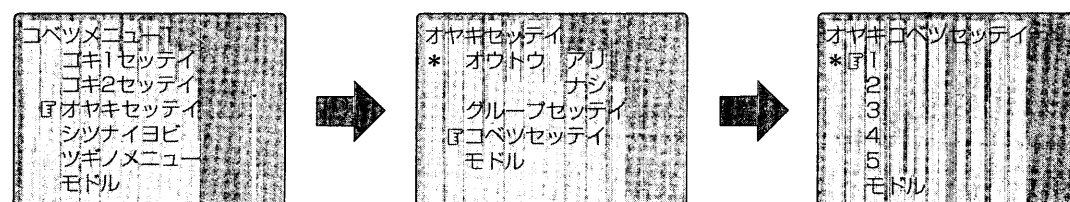 コベツメニュー1
コキ1セッテイ
コキ2セッテイ
☞オヤキセッテイ
シツナイヨビ
ツギノメニュー
モドル
オヤキセッテイ
* オウトウ アリ
ナシ
グループセッテイ
☞コベツセッテイ
モドル
オヤキコベツセッテイ
*☞1
2
3
4
5
モドル